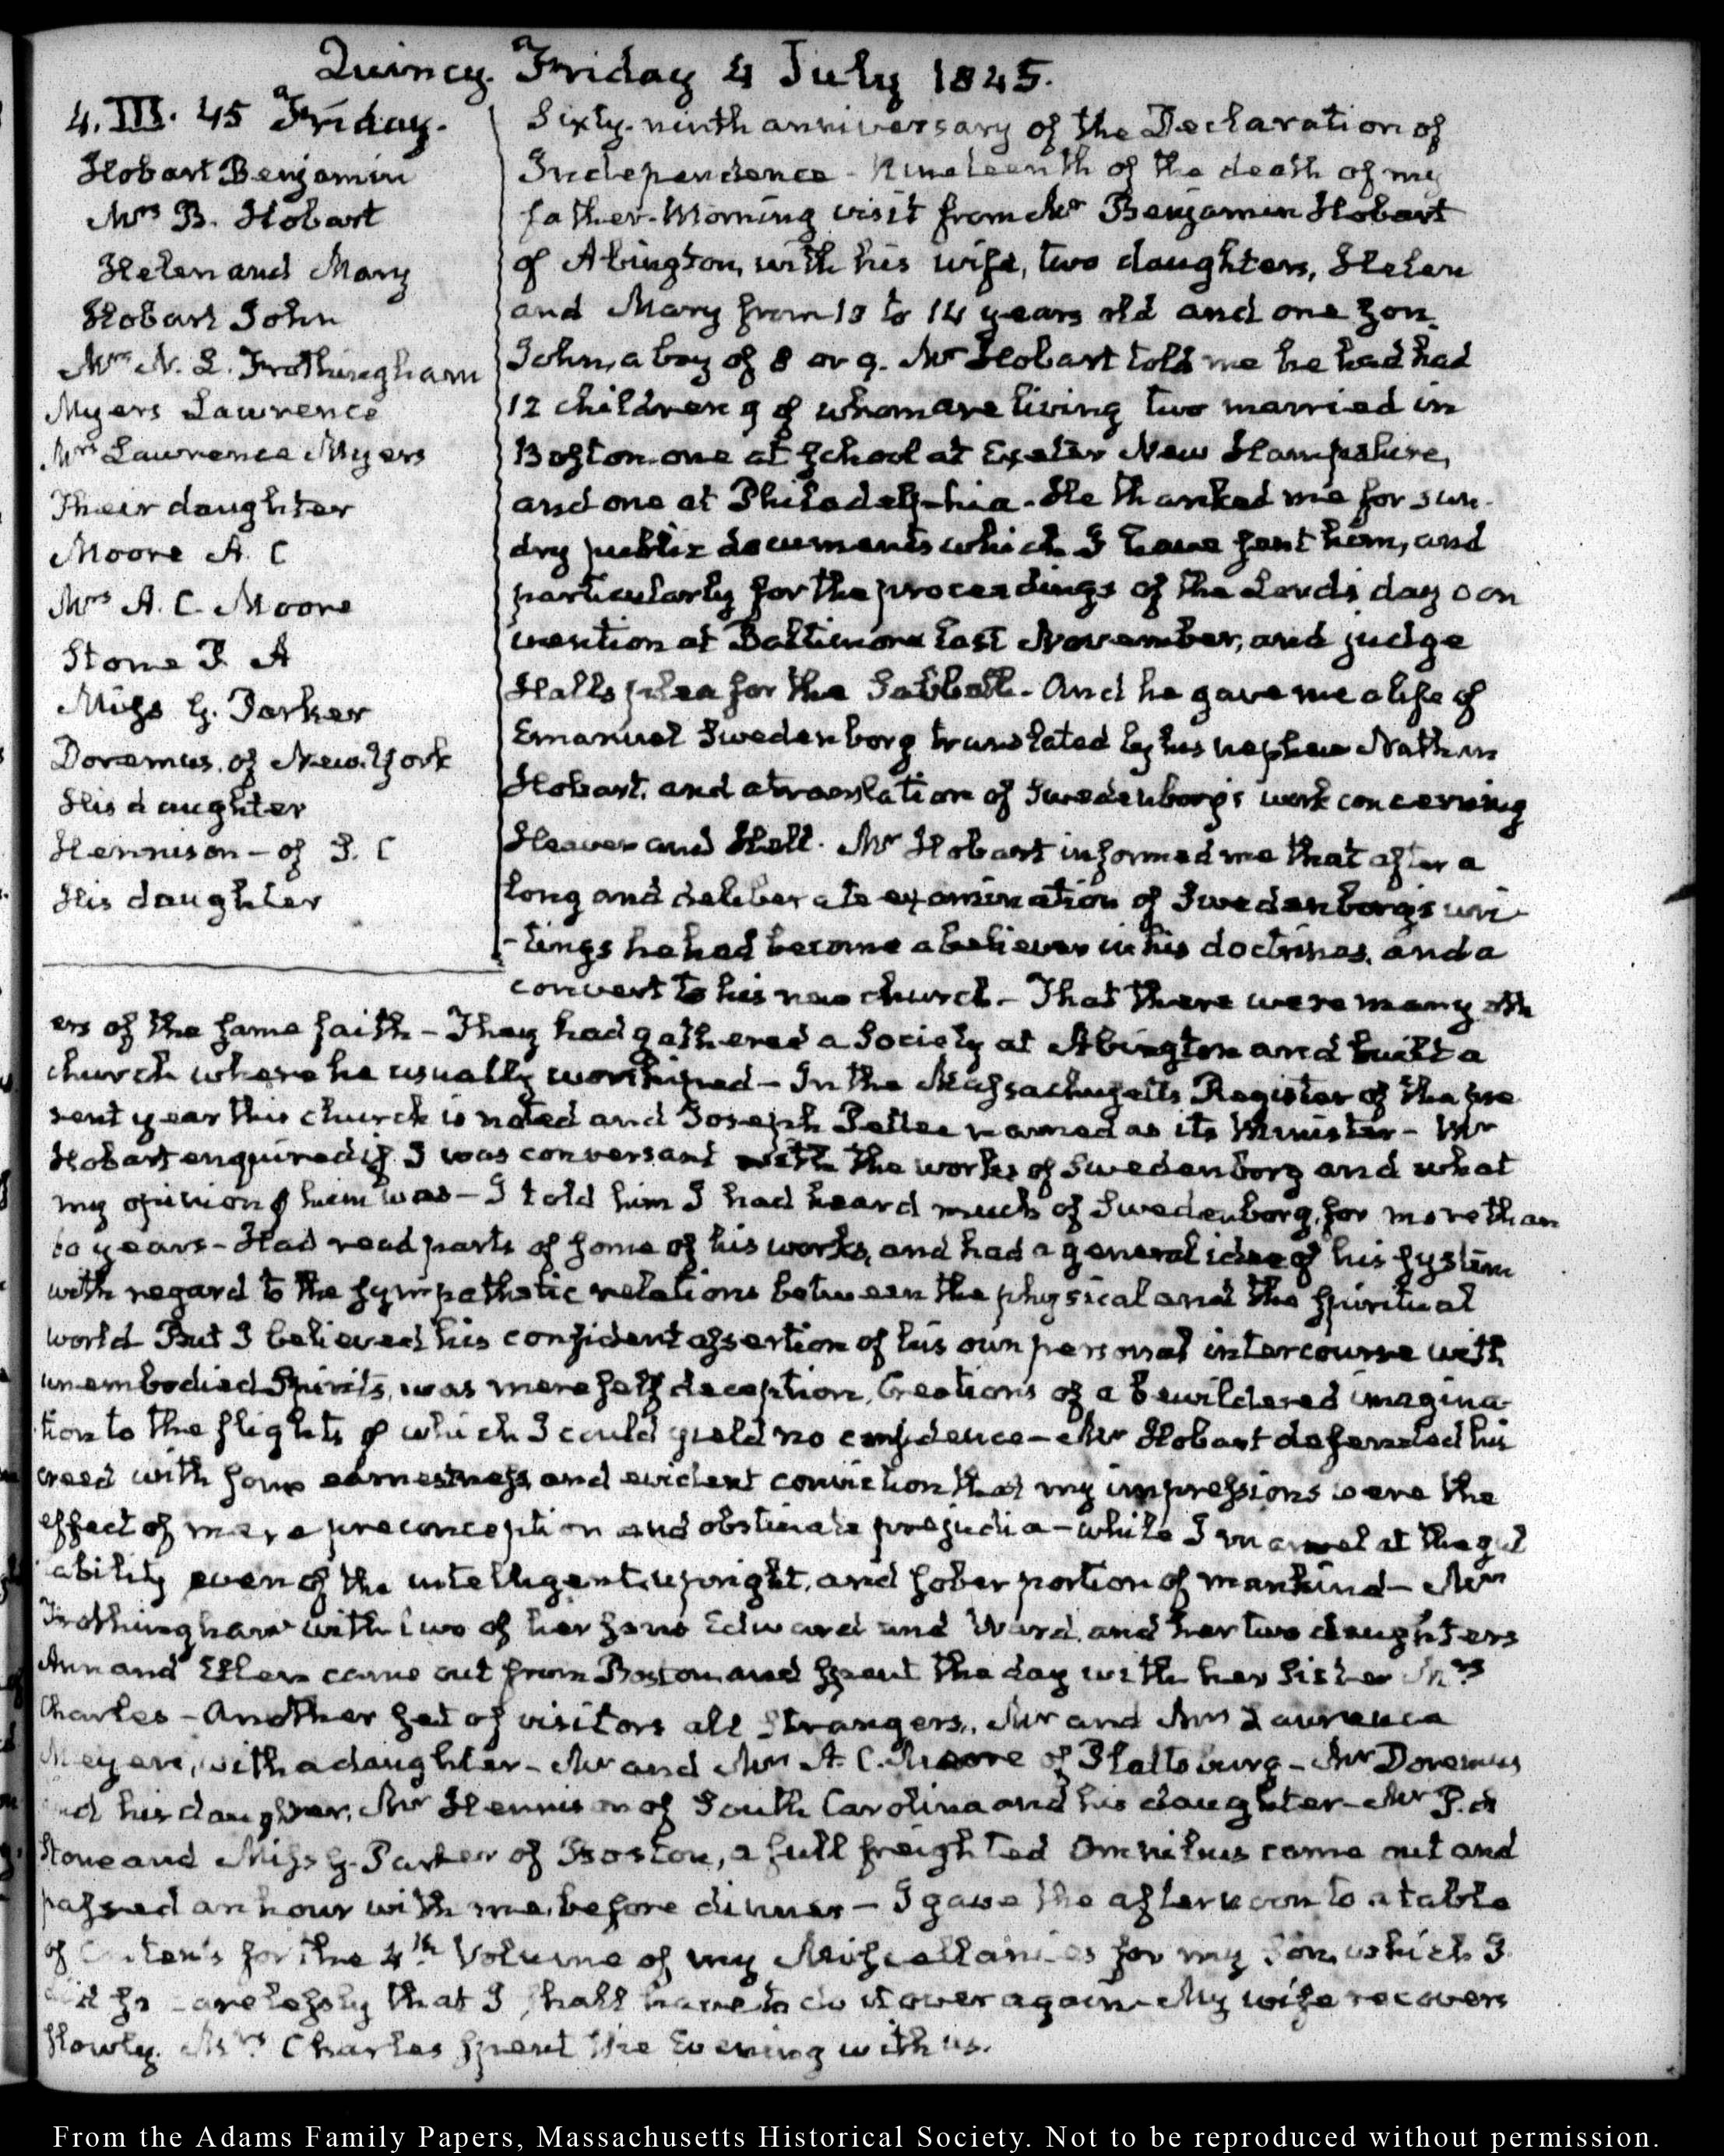 Quincy. Friday 4 July 1845.
4. III. 45 Friday.
Hobart Benjamin
Mrs B. Hobart
Helen and Mary
Hobart John
Mrs N. L. Frothingham
Myers Lawrence
Mrs Lawrence Myers
Their daughter
Moore A. C
Mrs A. C. Moore
Stone P. A
Miss G. Parker
Doremus. of New-York
His daughter
Hennison - of S. C
His daughter
Sixty-ninth anniversary of the Declaration of
Independence - Nineteenth of the death of my
father. Morning visit from Mr Benjamin Hobart
of Abington, with his wife, two daughters, Helen
and Mary from 18 to 14 years old and one son.
John, a boy of 8 or 9. Mr Hobart told me he had had
12 children 9 of whom are living two married in
Boston one at school at Exeter New Hampshire,
and one at Philadelp-hia. He thanked me for sun-
dry public documents which I have sent him, and
particularly for the proceedings of the Lord's day con
vention at Baltimore last November, and judge
Halls plea for the Sabbath. And he gave me a life of
Emanuel Swedenborg translated by his nephew Nathan
Hobart. and a translation of Swedenborg's work concerning
Heaven and Hell. Mr Hobart informed me that after a
long and deliberate examination of Swedenborg's wri-
-tings he had become a believer in his doctrines. and a
convert to his new church - That there were many oth
ers of the same faith - They had gathered a Society at Abington and built a
church where he usually worshipped - In the Massachusetts Register of the pre
sent year this church is noted and Joseph Pettee named as its Minister - Mr
Hobart enquired if I was conversant with the works of Swedenborg and what
my opinion of him was - I told him I had heard much of Swedenborg, for more than
60 years - Had read parts of some of his works, and had a general idea of his system
with regard to the sympathetic relations between the physical and the spiritual
world But I believed his confident assertion of his own personal intercourse with
unembodied Spirits, was mere self deception, Creations of a bewildered imagina-
tion to the flights of which I could yield no confidence - Mr Hobart defended his
creed with some earnestness, and evident conviction that my impressions were the
effect of mere preconception and obstinate prejudice - while I marvel at the gul
ability even of the intelligent, upright, and sober portion of mankind - Mrs
Frothingham with two of her sons Edward and Ward, and her two daughters
Ann and Ellen came out from Boston and spent the day with her Sister Mrs
Charles - Another set of visitors all Strangers, Mr and Mrs Lawrence
Meyers, with a daughter - Mr and Mrs A. C. Moore of Plattsburg - Mr Doremus
and his daughter, Mr Hennison of South Carolina and his daughter - Mr P. A
Stone and Miss G. Parker of Boston, a full freighted Omnibus came out and
passed an hour with me, before dinner - I gave the afternoon to a table
of Contents for the 4th Volume of my Miscellanies for my Son, which I
did so carelessly that I shall have to do it over again - My wife recovers
slowly. Mrs Charles spent the Evening with us.
From the Adams Family Papers, Massachusetts Historical Society. Not to be reproduced without permission.